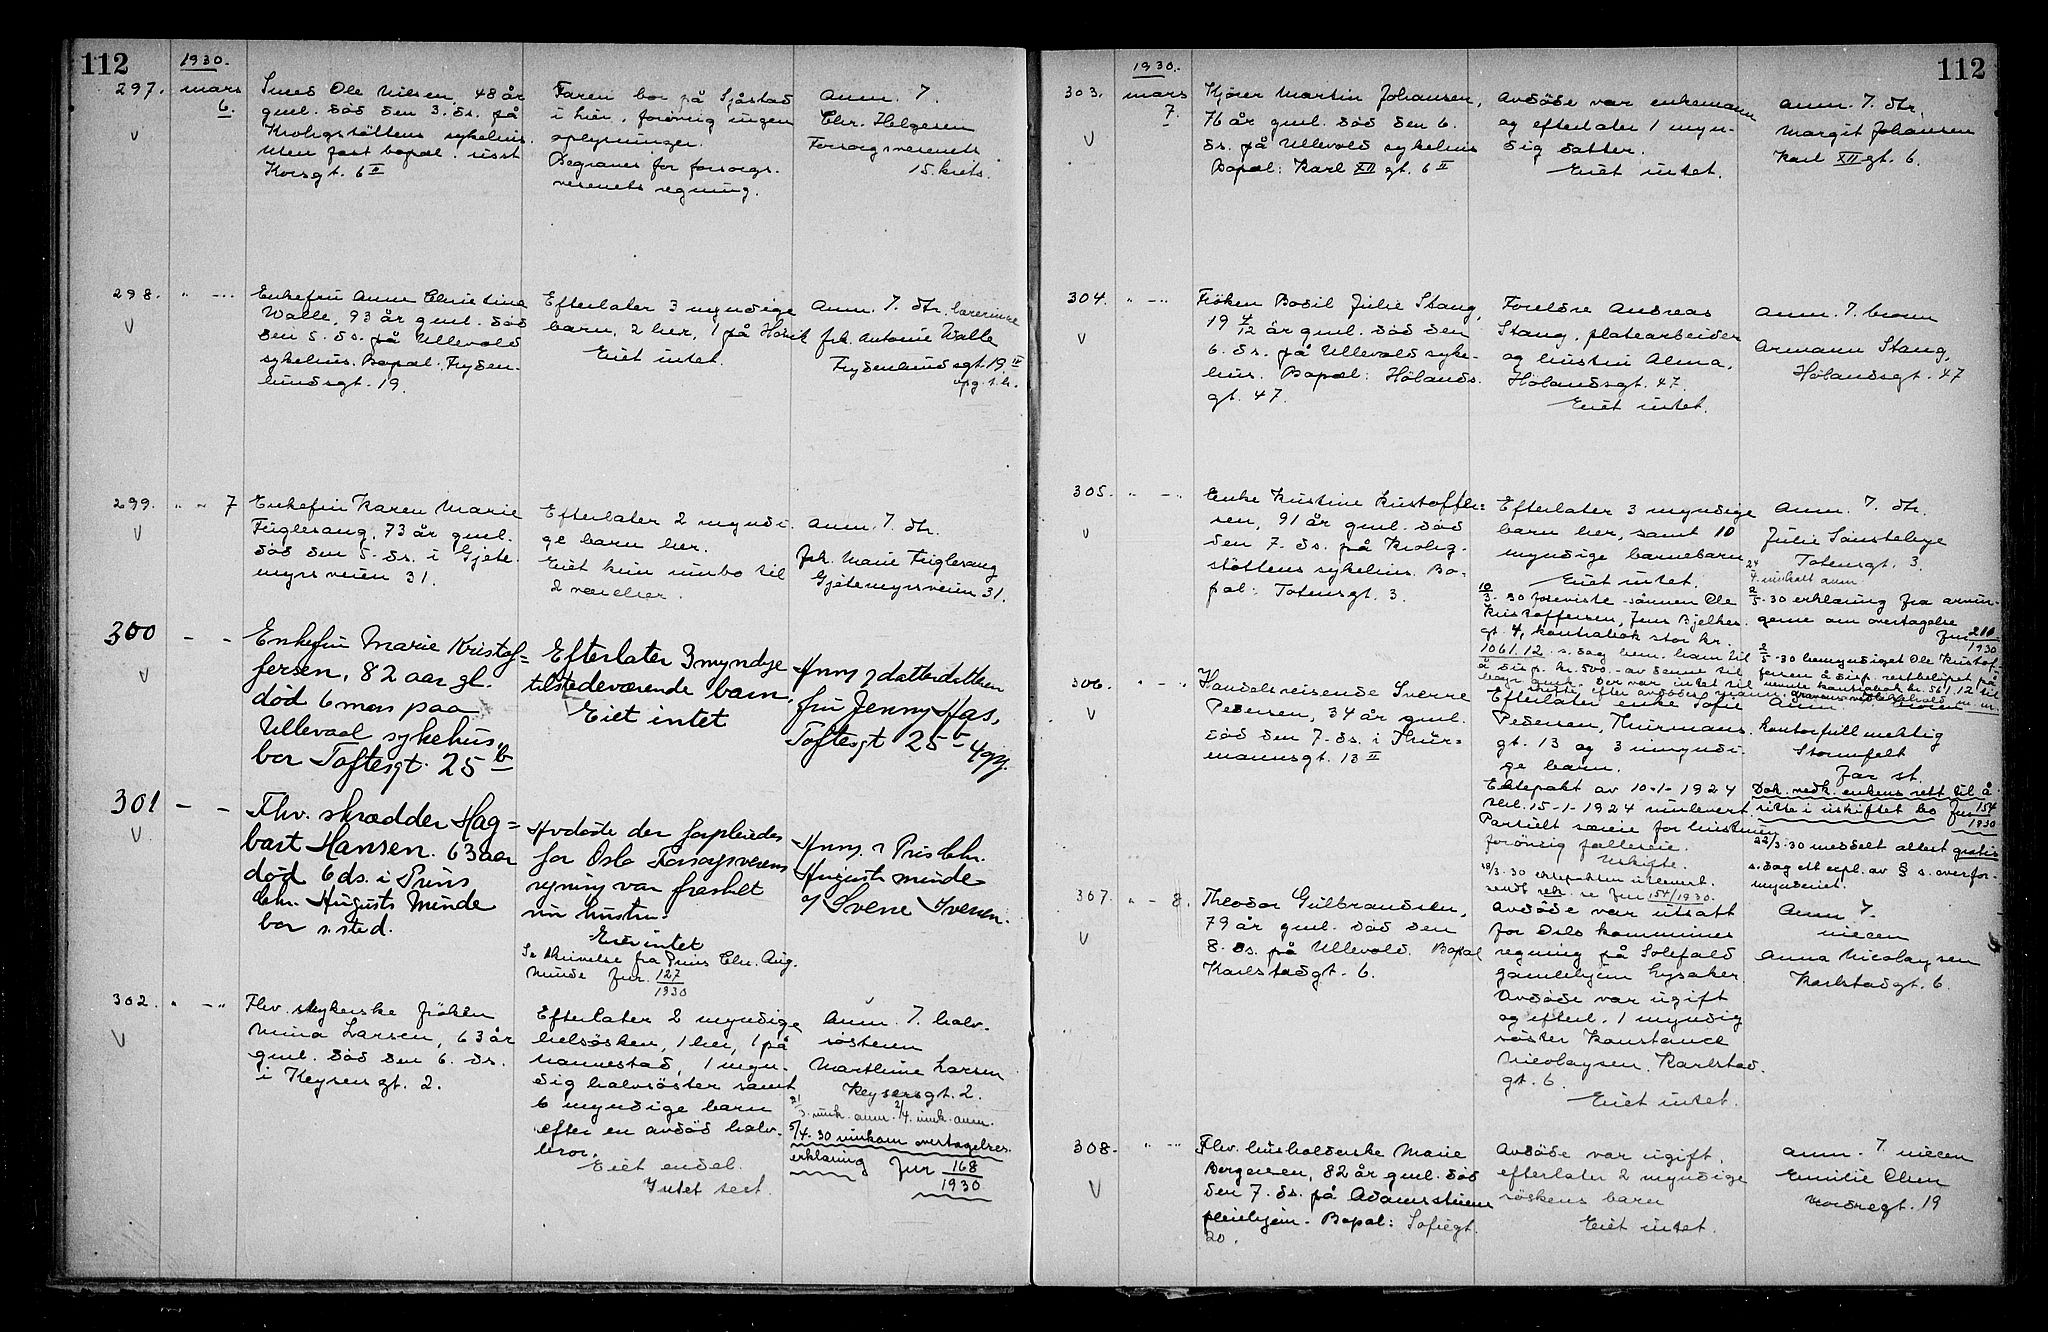 112
1930.
297. mars 6.
Smed Ole Nilsen, 48 år
gml. død den 3. ds. på
Krohgstøttens sykehus.
Uten fast bopæl. sisst
Korsgt. 6 II
Faren bor på Sjåstad
i Lier, forøvrig ingen
oplysninger.
Begraves for forsorgs-
vesenets regning.
Anm. 7.
Chr. Helgesen
Forsorgsvesenets
15. krets.
298. " - "
Enkefru Anne Christine
Walle, 93 år gml. død
den 5. ds. på Ullevold
sykehus. Bopæl: Fryden-
lundsgt. 19.
Efterlater 3 myndige
barn, 2 her, 1 på Høvik
Eiet intet.
Anm. 7. dtr. lærerinne
frk. Antonie Walle
Frydenlundsgt. 19 IV
opg. t.h.
299. " - 7
Enkefru Karen Marie
Fuglesang, 73 år gml.
død den 5. ds. i Gjete-
myrsveien 31.
Efterlater 2 myndi-
ge barn her.
Eiet kun innbo til
2 værelser.
Anm. 7. dtr.
frk. Marie Fuglesang
Gjetemyrsveien 31.
300 - -
Enkefru Marie Kristof=
fersen, 82 aar gl.
død 6 mars paa
Ullevaal sykehus,
bor Toftesgt. 25 b
Efterlater 3 myndige
tilstedeværende barn.
Eiet intet
Anm. 7 datterdatteren
fru Jenny Aas,
Toftesgt 25 b 4 opg.
301 - -
Fhv. skrædder Hag=
bart Hansen. 63 aar
død 6 ds. i Prins
Chr. Augusts Minde
bor s. sted.
Avdøde der forpleiedes
for Oslo Forsorgsvesens
regning var fraskilt
sin hustru.
Eiet intet
Se skrivelse fra Prins Chr. Aug.
Minde Jnr. 127/1930
Anm. 7 Prins Chr.
Augusts minde
v/ Svene Iversen.
302. " - "
Fhv. sykerske frøken
Mina Larsen, 63 år
gml. død den 6. ds.
i Keysersgt. 2.
Efterlater 2 myndige
helsøsken, 1 her, 1 på
Nannestad, 1 myn-
dig halvsøster samt
6 myndige barn
efter en avdød halv-
bror.
Eiet endel.
Intet sect.
Anm. 7. halv-
søsteren
Marthine Larsen
Keysersgt. 2.
21/3. innk. anm. 2/4. innk. anm.
5/4. 30 innkom overtagelses
erklæring Jnr 168/1930
112
1930.
303. mars 7.
Kjører Martin Johansen,
76 år gml. død den 6.
ds. på Ullevold sykehus
Bopæl: Karl XII gt. 6 II
Avdøde var enkemann
og efterlater 1 myn-
dig datter.
Eiet intet.
Anm. 7. dtr.
Margit Johansen
Karl XII gt. 6.
304. " - "
Frøken Bodil Julie Stang,
19 4/12 år gml. død den
6. ds. på Ullevold syke-
hus. Bopæl: Hølands-
gt. 47.
Foreldre Andreas
Stang, platearbeider
og hustru Alma,
Hølandsgt. 47.
Eiet intet.
Anm. 7. broren
Armann Stang,
Hølandsgt. 47
305. " - "
Enke Kristine Kristoffer-
sen, 91 år gml. død
den 7. ds. på Krohg-
støttens sykehus. Bo-
pæl: Totensgt. 3.
Efterlater 3 myndige
barn her, samt 10
myndige barnebarn.
Eiet intet.
10/3. 30 foreviste sønnen Ole
Kristoffersen, Jens Bjelkes
gt. 4, kontrabok stor kr.
1061.12. s. dag bem. ham til
å disp. kr. 500.- av denne til
begr. omk. Der var intet til
skifte efter avdødes mann.
Anm. 7. dtr.
Julie Sønstebye
Totensgt. 3.
24/4. innkalt anm.
2/5. 30 erklæring fra arvin-
gerne om overtagelse
Jnr 210/1930
2/5. 30 bemyndiget Ole Kristof-
fersen å disp. restbeløpet på
nevnte kontrabok kr. 561.12 til
gravens vedlikehold m.m.
306. " - "
Handelsreisende Sverre
Pedersen, 34 år gml.
død den 7. ds. i Thur=
mannsgt. 13 II
Efterlater enke Sofie
Pedersen, Thurmanns-
gt. 13 og 3 umyndi-
ge barn.
Ektepakt av 10-1-1924
thl. 15-1-1924 innlevert.
Partielt særeie for hustruen
forøvrig fælleseie.
Uskifte.
18/3. 30 ektepakten utlevert.
sendt se Jnr 154/1930.
Anm. 7. broren
kontorfullmektig
Stormfelt
Far st.
Dok. vedk. enkens rett til å
sitte i uskiftet bo Jnr 154/1930
22/3. 30 meddelt attest gratis
s. dag ett expl. av § s. overfor-
mynderiet.
307. " - 8.
Theodor Gulbrandsen,
79 år gml. død den
8. ds. på Ullevold. Bopæl
Karlstadgt. 6.
Avdøde var utsatt
for Oslo kommunes
regning på Solefald
gamlehjem Lysaker.
Avdøde var ugift
og efterl. 1 myndig
søster Konstance
Nicolaysen, Karlstad-
gt. 6.
Eiet intet.
Anm. 7.
niecen
Anna Nicolaysen
Karlstadgt. 6.
308. " - "
Fhv. husholderske Marie
Bergersen, 82 år gml. død
den 7. ds. på Adamstuen
pleiehjem. Bopæl: Sofiegt.
20.
Avdøde var ugift.
efterlater 2 myndige
søskens barn
Eiet intet.
Anm. 7. niecen
Emilie Olsen
Nordregt. 19